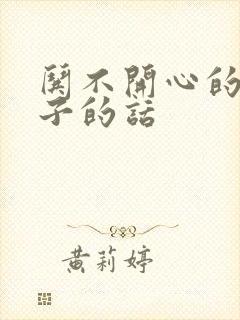 閱不開心的
子的話
黃莉婷